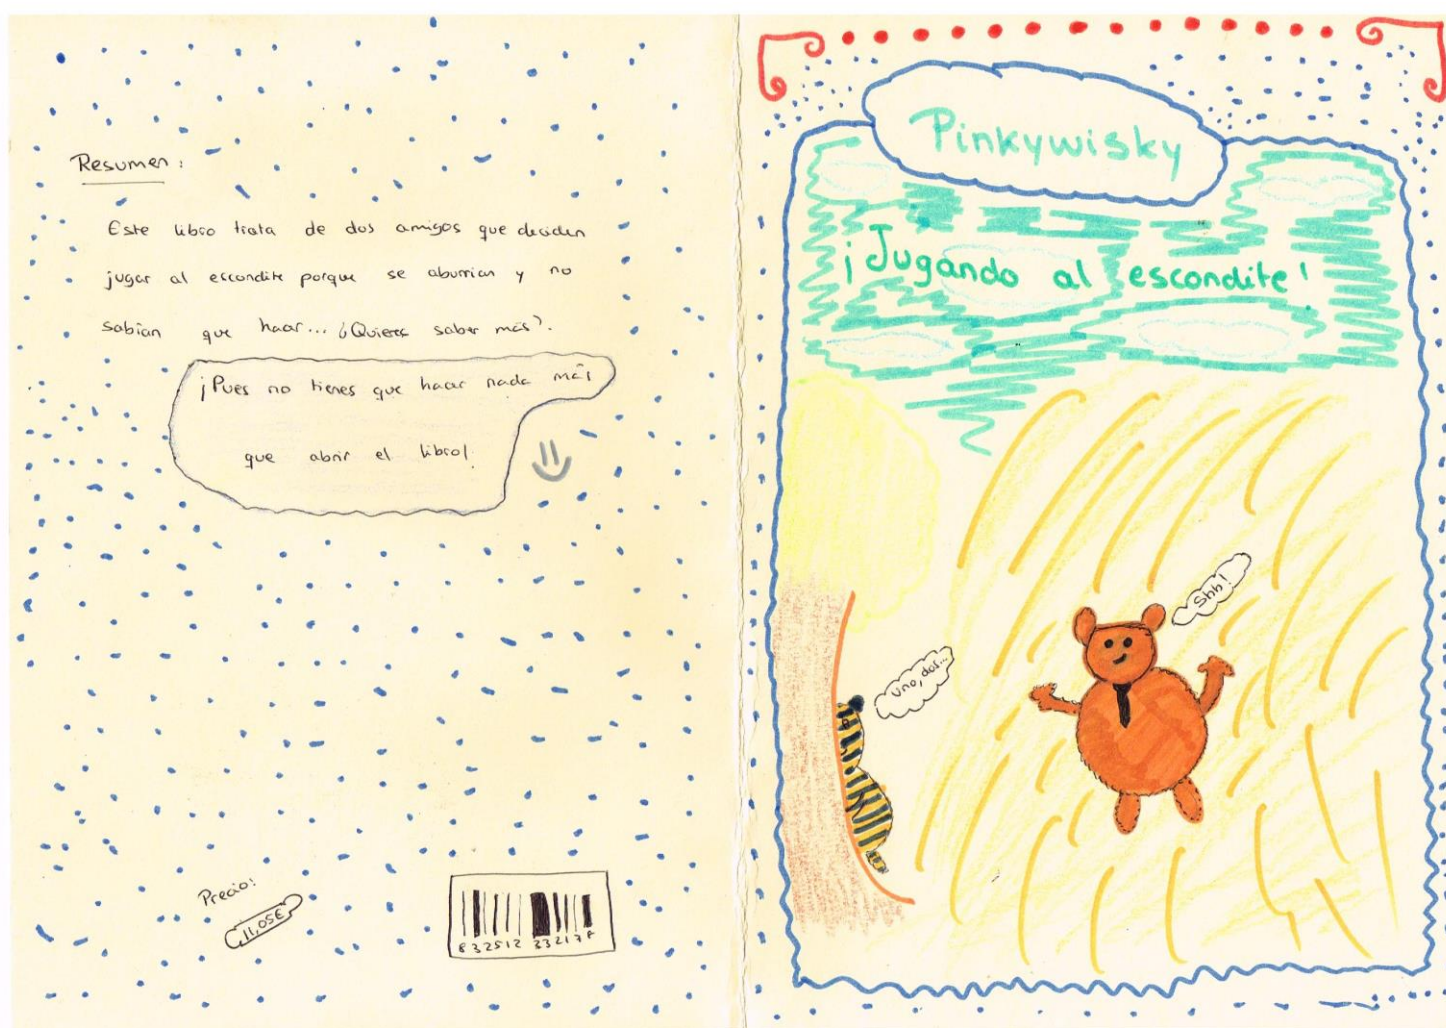 Resumen:
Este libro trata de dos amigos que deciden
jugar al escondite porque se aburrian y no
sabían que hacer... ¿Quieres saber más?.
¡Pues no tienes que hacer nada más
que abrir el libro!
Precio:
11,05€
832512 23217F
Pinkywisky
¡Jugando al escondite!
Shh!
uno, dos...